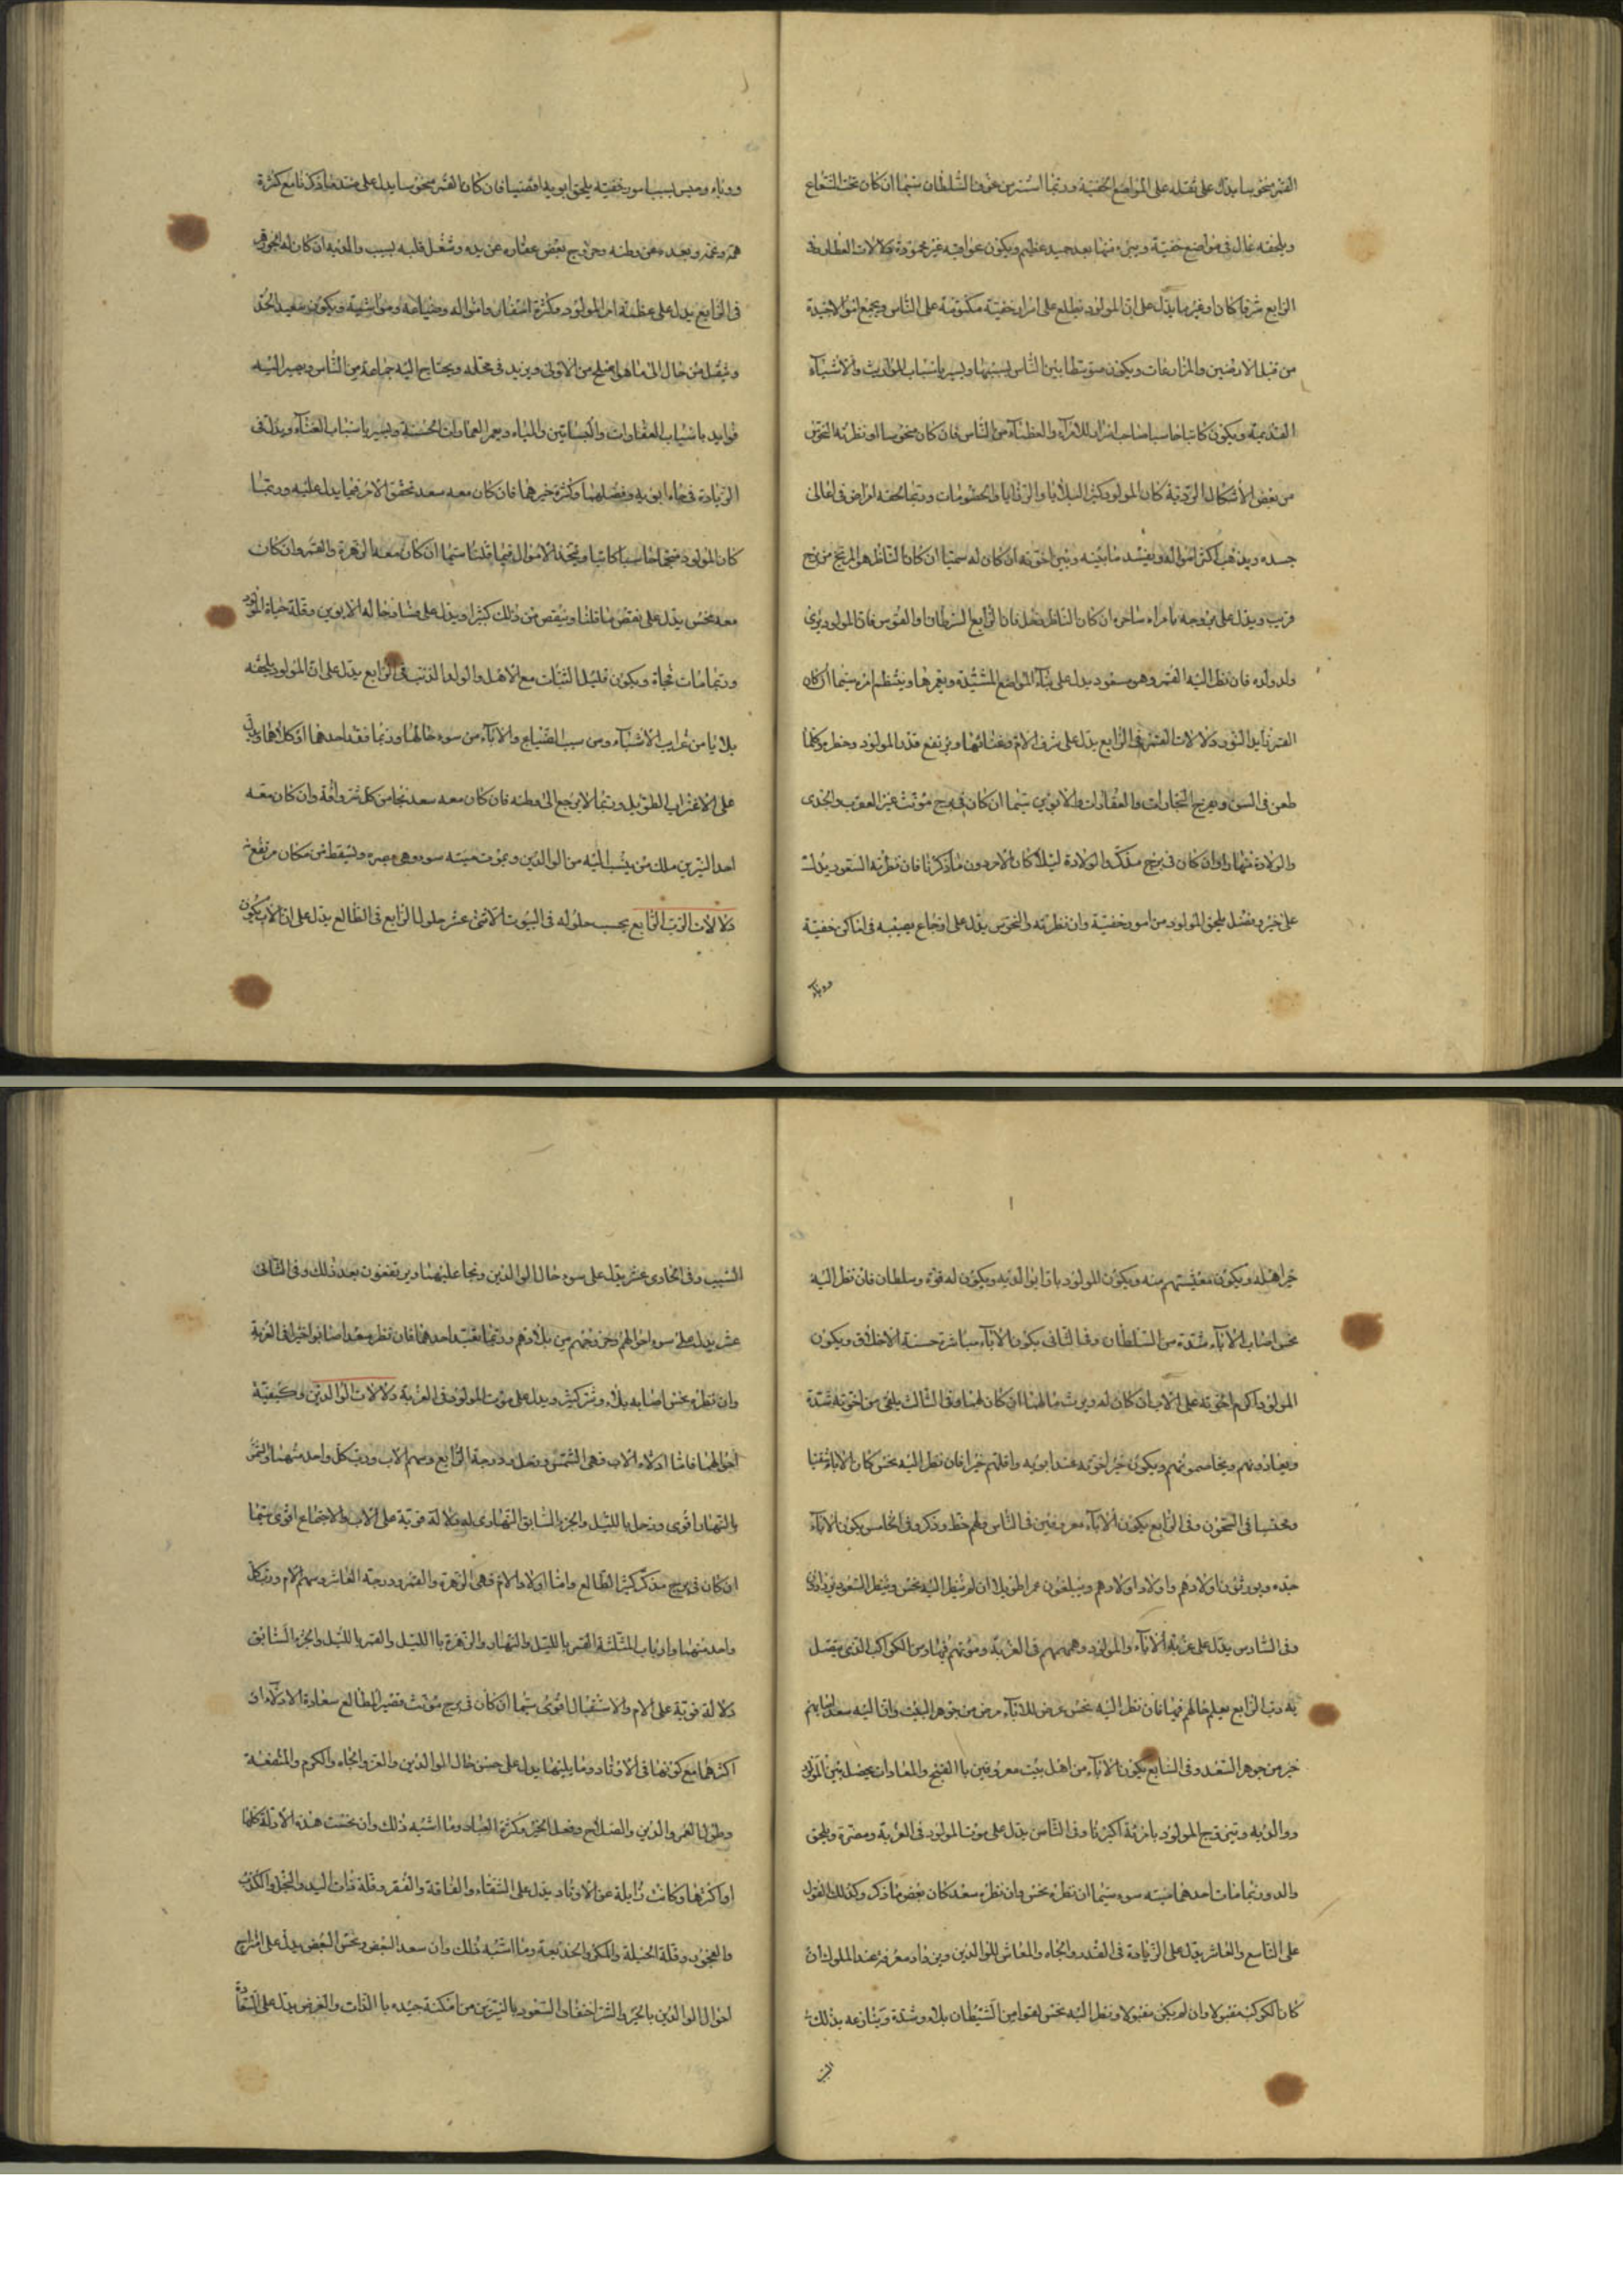 القمر منحوسا يدل على نقله على المواضع الخفية وربما استتر من خوف السلطان سيما ان كان تحت الشعاع
ويلحقه غال في مواضع خفية وبرء منها بعد جهد عظيم ويكون عواقبه غير محمودة دلالات العطارد في
الرابع شرقيا كان او غربيا يدل على ان المولود يطلع على اسرار خفية مكتومة على الناس ويجمع اموالا جيدة
من قبل الارضين والمزارعات ويكون متوسطا بين الناس بسببها وبسبب اسباب المواريث والاشياء
القديمة ويكون كاتبا حاسبا صاحب اسرار للامراء والعظماء من الناس فان كان منحوسا او نظر به النحوس
من بعض الاشكال الردية كان المولود كثير البلايا والرزايا والخصومات وربما لحقه امراض في اعالي
جسده ويذهب اكثر امواله ويفسد ما بينه وبين اخوته ان كان له سيما ان كان الناظر هو المريخ من برج
قريب ويدل على تزوجه بامراة ساحرة ان كان الناظر زحل فان الرابع السرطان والقوس فان المولود يرى
ولد ولده فان نظر اليه القمر وهو مسعود يدل على بناء المواضع المشيدة ويعمرها وينتظم امره سيما ان كان
القمر زايد النور دلالات القمر في الرابع يدل على شرف الام وغنائها ويرتفع قدر المولود وخطره كلما
طعن في السن ويربح التجارات والعقارات والابوين سيما ان كان في برج مونث غير العقرب والجدى
والولادة نهارا وان كان في برج مذكر والولادة ليلا كان الامر دون ما ذكرنا فان نظر به السعود يدل
على خير وفضل يلحق المولود من امور خفية وان نظر به والنحوس يدل على اوجاع يصيبه في اماكن خفية
ووباء وحبس بسبب امور خفية يلحق ابويه افضيا فان كان القمر منحوسا يدل على شدة ما ذكرنا مع كثرة
همه وغمه وبعده عن وطنه وخروج بعض عقاره عن يده وشغل قلبه بسبب والديه ان كان له الجوزهر
في الرابع يدل على عظمة امر المولود وكثرة اسفاره وامواله وضياعه ومواشيه ويكون سعيد الجد
وينقل من حال الى ما هو افضل من الاولى ويزيد في محله ويحتاج اليه جماعة من الناس ويصير اليه
فوايد باسباب العقارات والبساتين والمياه ويعمر العمارات الحسنة ويسر باسباب الغناء ويدل في
الزيادة في جاه ابويه وفضلهما وكثرة خيرهما فان كان معه سعد تحقق الامر فيما يدل عليه وربما
كان المولود منجما حاسبا كاتبا ويتخذ الاموال فيما قلنا سيما ان كان معه الزهرة والقمر وان كان
معه نحس يدل على نقص ما قلنا وينقص من ذلك كثيرا ويدل على فساد حاله الابوين وقلة حياة المولود
وربما مات فجاة ويكون قليل الثبات مع الاهل والولد الذنب في الرابع يدل على ان المولود يلحقه
بلايا من غرايب الاشياء ومن سبب الضياع والاباء من سوء حالهما وربما فقد احدهما او كلاهما ويدل
على الاغتراب الطويل وربما لا يرجع الى وطنه فان كان معه سعد نجا من كل شر وافة وان كان معه
احد النيرين ملك من ينسب اليه من الوالدين ويموت ميتة سوء وهي بصره وليسقط من مكان مرتفع
دلالات الرب الرابع بحسب حلوله في البيوت الاثنى عشر حلول الرابع في الطالع يدل على ان الاب يكون
خيرا هله ويكون معيشتهم منه ويكون للمولود بارا بوالديه ويكون له قوة وسلطان فان نظر اليه
نحس اصاب الاباء شدة من السلطان وفي الثاني يكون الاباء مياشر حسنة الاخلاق ويكون
المولود اكرم اخوته على الاب ان كان له ويرث مالهما ان كان لهما وفي الثالث يلقى من اخوته شدة
ويعادونهم ويخاصمونهم ويكون خير اخوته عند ابويه واقلهم خيرا فان نظر اليه نحس كان الاباء شقيا
ومحتبسا في السجون وفي الرابع يكون الاباء معروفين في الناس ولهم خطر وذكر وفي الخامس يكون الاباء
جيده ويورثون اولادهم واولاد اولادهم ويبلغون عمرا طويلا ان لم ينظر اليه نحس وينظر السعود
وفي السادس يدل على غربة الاباء والمولود وهمهم في الغربة وموتهم فيها ومن الكواكب الذى يتصل
به رب الرابع يعلم حالهم فيها فان نظر اليه نحس عرض للاباء مرض من جوهر البيت واذا اليه سعد اصابهم
خير من جوهر السعد وفي السابع يكون الاباء من اهل بيت معروفين با القبيح والمعادات يحصل بين المولود
ووالديه وتيزوج المولود بامراة اكبرنا وفي الثامن يدل على موت المولود في الغربة ومضرة ويلحق
والده وربما مات احدهما ميتة سوء سيما ان نظره نحس وان نظره سعد كان بعض ما ذكر وكذلك القول
على التاسع والعاشر يدل على الزيادة في القدر والجاه والمعاش للوالدين وبرفاد معرفة عند الملوك ان
كان الكوكب مقبولا وان لم يكن مقبولا ونظر اليه نحس لقوا من الشيطان بلاء وشدة وينازعه بذلك
السبب وفي الحادى عشر يدل على سوء حال الوالدين ونجا عليهما ويرتفعون بعد ذلك وفي الثانى
عشر يدل على سوء احوالهم وخروجهم من بلادهم وربما نفيد احدهما فان نظر سعد اصابوا خيرا في الغربة
وان نظره نحس اصابه بلاء وشر كثير ويدل على موت المولود في الغربة دلالات الوالدين وكيفية
احوالهما فاما ادلاء الاب فهى الشمس وزحل ودرجة الرابع وسهم الاب ورب كل واحد منهما والشمس
بالنهار اقوى وزحل بالليل والجزء السابق النهارى له دلالة قوية على الاب والاجتماع اقوى سيما
ان كان في برج مذكر كثير الطالع واما اولاد الام فهى الزهرة والقمر ودرجة العاشر وسهم الام ورب كل
واحد منهما وارباب المثلثة القمر بالليل والنهار والزهرة باالليل والقمر بالليل والجزء السابق
دلالة قوية على الام والاستقبال اقوى سيما ان كان في برج مونث قصير المطالع سعادة الادلاء او
اكثرهما مع كونها في الاوتاد وما يليها يدل على حسن حال الوالدين والعز والجاه والكرم والمنفعة
وطول العمر والدين والصلاح وفعل الخير وكثرة العباد وما اشبه ذلك وان نحست هذه الادلة كلها
او اكثرها وكانت زايلة عن الاوتاد يدل على الشقاء والفاقة والفقر وقلة ذات اليد والبخل والكذب
والفجور وقلة الحيلة والمكر والخديعة وما اشبه ذلك وان سعد البعض ونحس البعض يدل على امتزاج
احوال الوالدين بالخير والشر احتفاف السعود بالنيرين من امكنة جيده با الذات والعرض يدل على السعادة